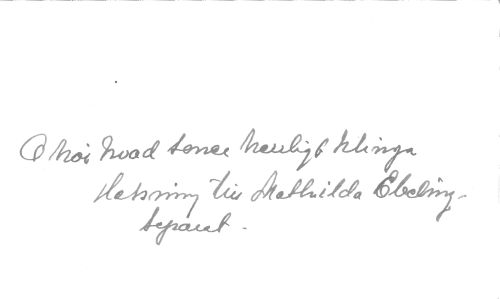 O hör hvad toner herrligt klinga
Helsning till Mathilda Ebeling
Separat.